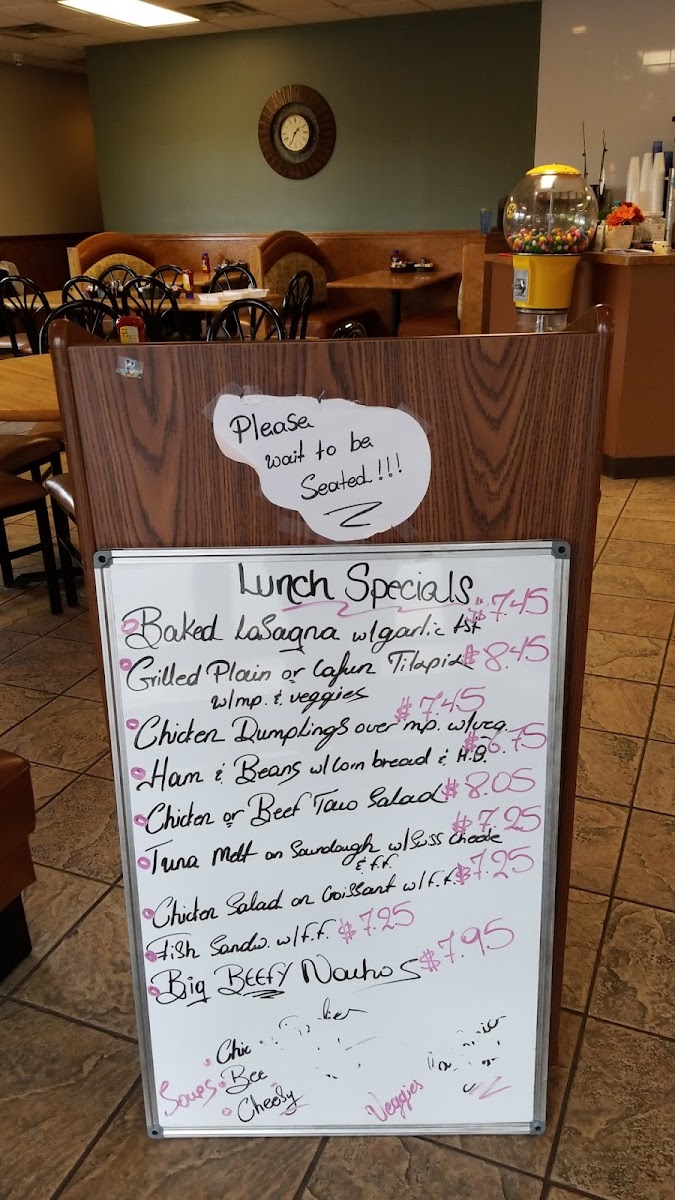 Please
wait to be
Seated!!!
Lunch Specials
Baked Lasagna w/garlic tst $7.45
Grilled Plain or Cajun Tilapia $8.45
w/mp. & veggies
Chicken Dumplings over mp. w/veg. $7.45
Ham & Beans w/corn bread & H.B. $6.75
Chicken or Beef Taco Salad $8.05
Tuna Melt on Sourdough w/Swiss cheese $7.25
& f.f.
Chicken Salad on Croissant w/f.f. $7.25
Fish Sandw. w/f.f. $7.25
Big BEEFY Nachos $7.95
Chic
Soups Bee
Cheesy
Veggies